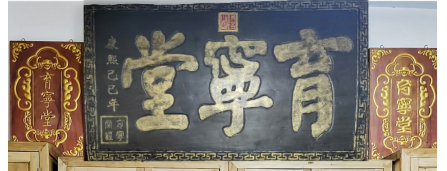 育寧堂
康熙己巳年
育寧堂
育寧堂